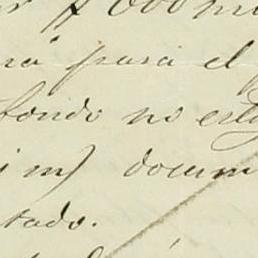 000 m
ra" para el
fondo no est
im) docum
tado.